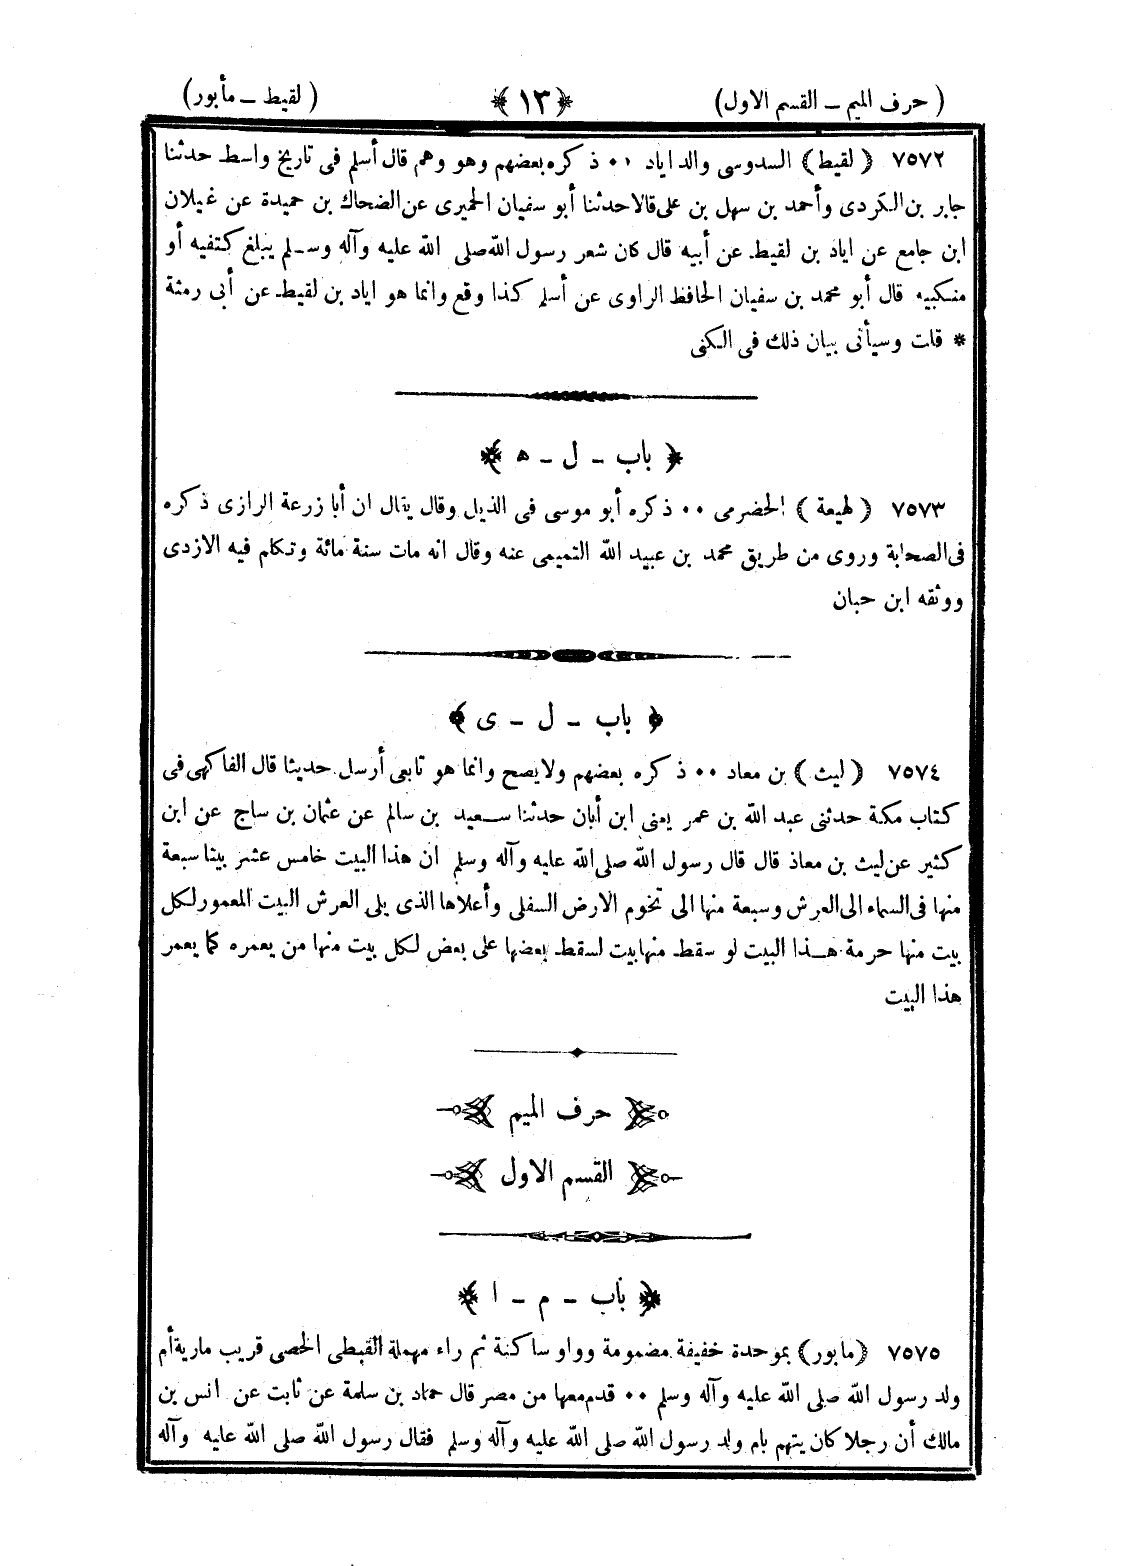 ( حرف الميم ــ القسم الاول) ﴿ ١٣ ﴾ ( لقيط ــ مأبور)
٧٥٧٢ ( لقيط) السدوسى والد اياد ٠٠ ذكره بعضهم وهو وهم قال أسلم فى تاريخ واسط حدثنا
جابر بن الكردى وأحمد بن سهل بن على قالا حدثنا أبو سفيان الحميرى عن الضحاك بن حميدة عن غيلان
ابن جامع عن اياد بن لقيط عن أبيه قال كان شعر رسول الله صلى الله عليه وآله وسلم يبلغ كتفيه أو
منكبيه قال أبو محمد بن سفيان الحافظ الراوى عن أسلم كذا وقع وانما هو اياد بن لقيط عن أبى رمثة
* قلت وسيأتى بيان ذلك فى الكنى
﴿ باب ــ ل ــ ه ﴾
٧٥٧٣ ( لهيعة ) الحضرمى ٠٠ ذكره أبو موسى فى الذيل وقال يقال ان أبا زرعة الرازى ذكره
فى الصحابة وروى من طريق محمد بن عبيد الله التميمى عنه وقال انه مات سنة مائة وتكلم فيه الازدى
ووثقه ابن حبان
﴿ باب ــ ل ــ ى ﴾
٧٥٧٤ ( ليث ) بن معاذ ٠٠ ذكره بعضهم ولا يصح وانما هو تابعى أرسل حديثا قال الفاكهى فى
كتاب مكة حدثنى عبد الله بن عمر يعنى ابن أبان حدثنا سعيد بن سالم عن عثمان بن ساج عن ابن
كثير عن ليث بن معاذ قال قال رسول الله صلى الله عليه وآله وسلم ان هذا البيت خامس عشر بيتا سبعة
منها فى السماء الى العرش وسبعة منها الى تخوم الارض السفلى وأعلاها الذى يلى العرش البيت المعمور لكل
بيت منها حرمة هذا البيت لو سقط منها بيت لسقط بعضها على بعض لكل بيت منها من يعمره كما يعمر
هذا البيت
حرف الميم
القسم الاول
﴿ باب ــ م ــ ا ﴾
٧٥٧٥ (مابور) بموحدة خفيفة مضمومة وواو ساكنة ثم راء مهملة القبطى الخصى قريب مارية أم
ولد رسول الله صلى الله عليه وآله وسلم ٠٠ قدم معها من مصر قال حماد بن سلمة عن ثابت عن انس بن
مالك أن رجلا كان يتهم بام ولد رسول الله صلى الله عليه وآله وسلم فقال رسول الله صلى الله عليه وآله